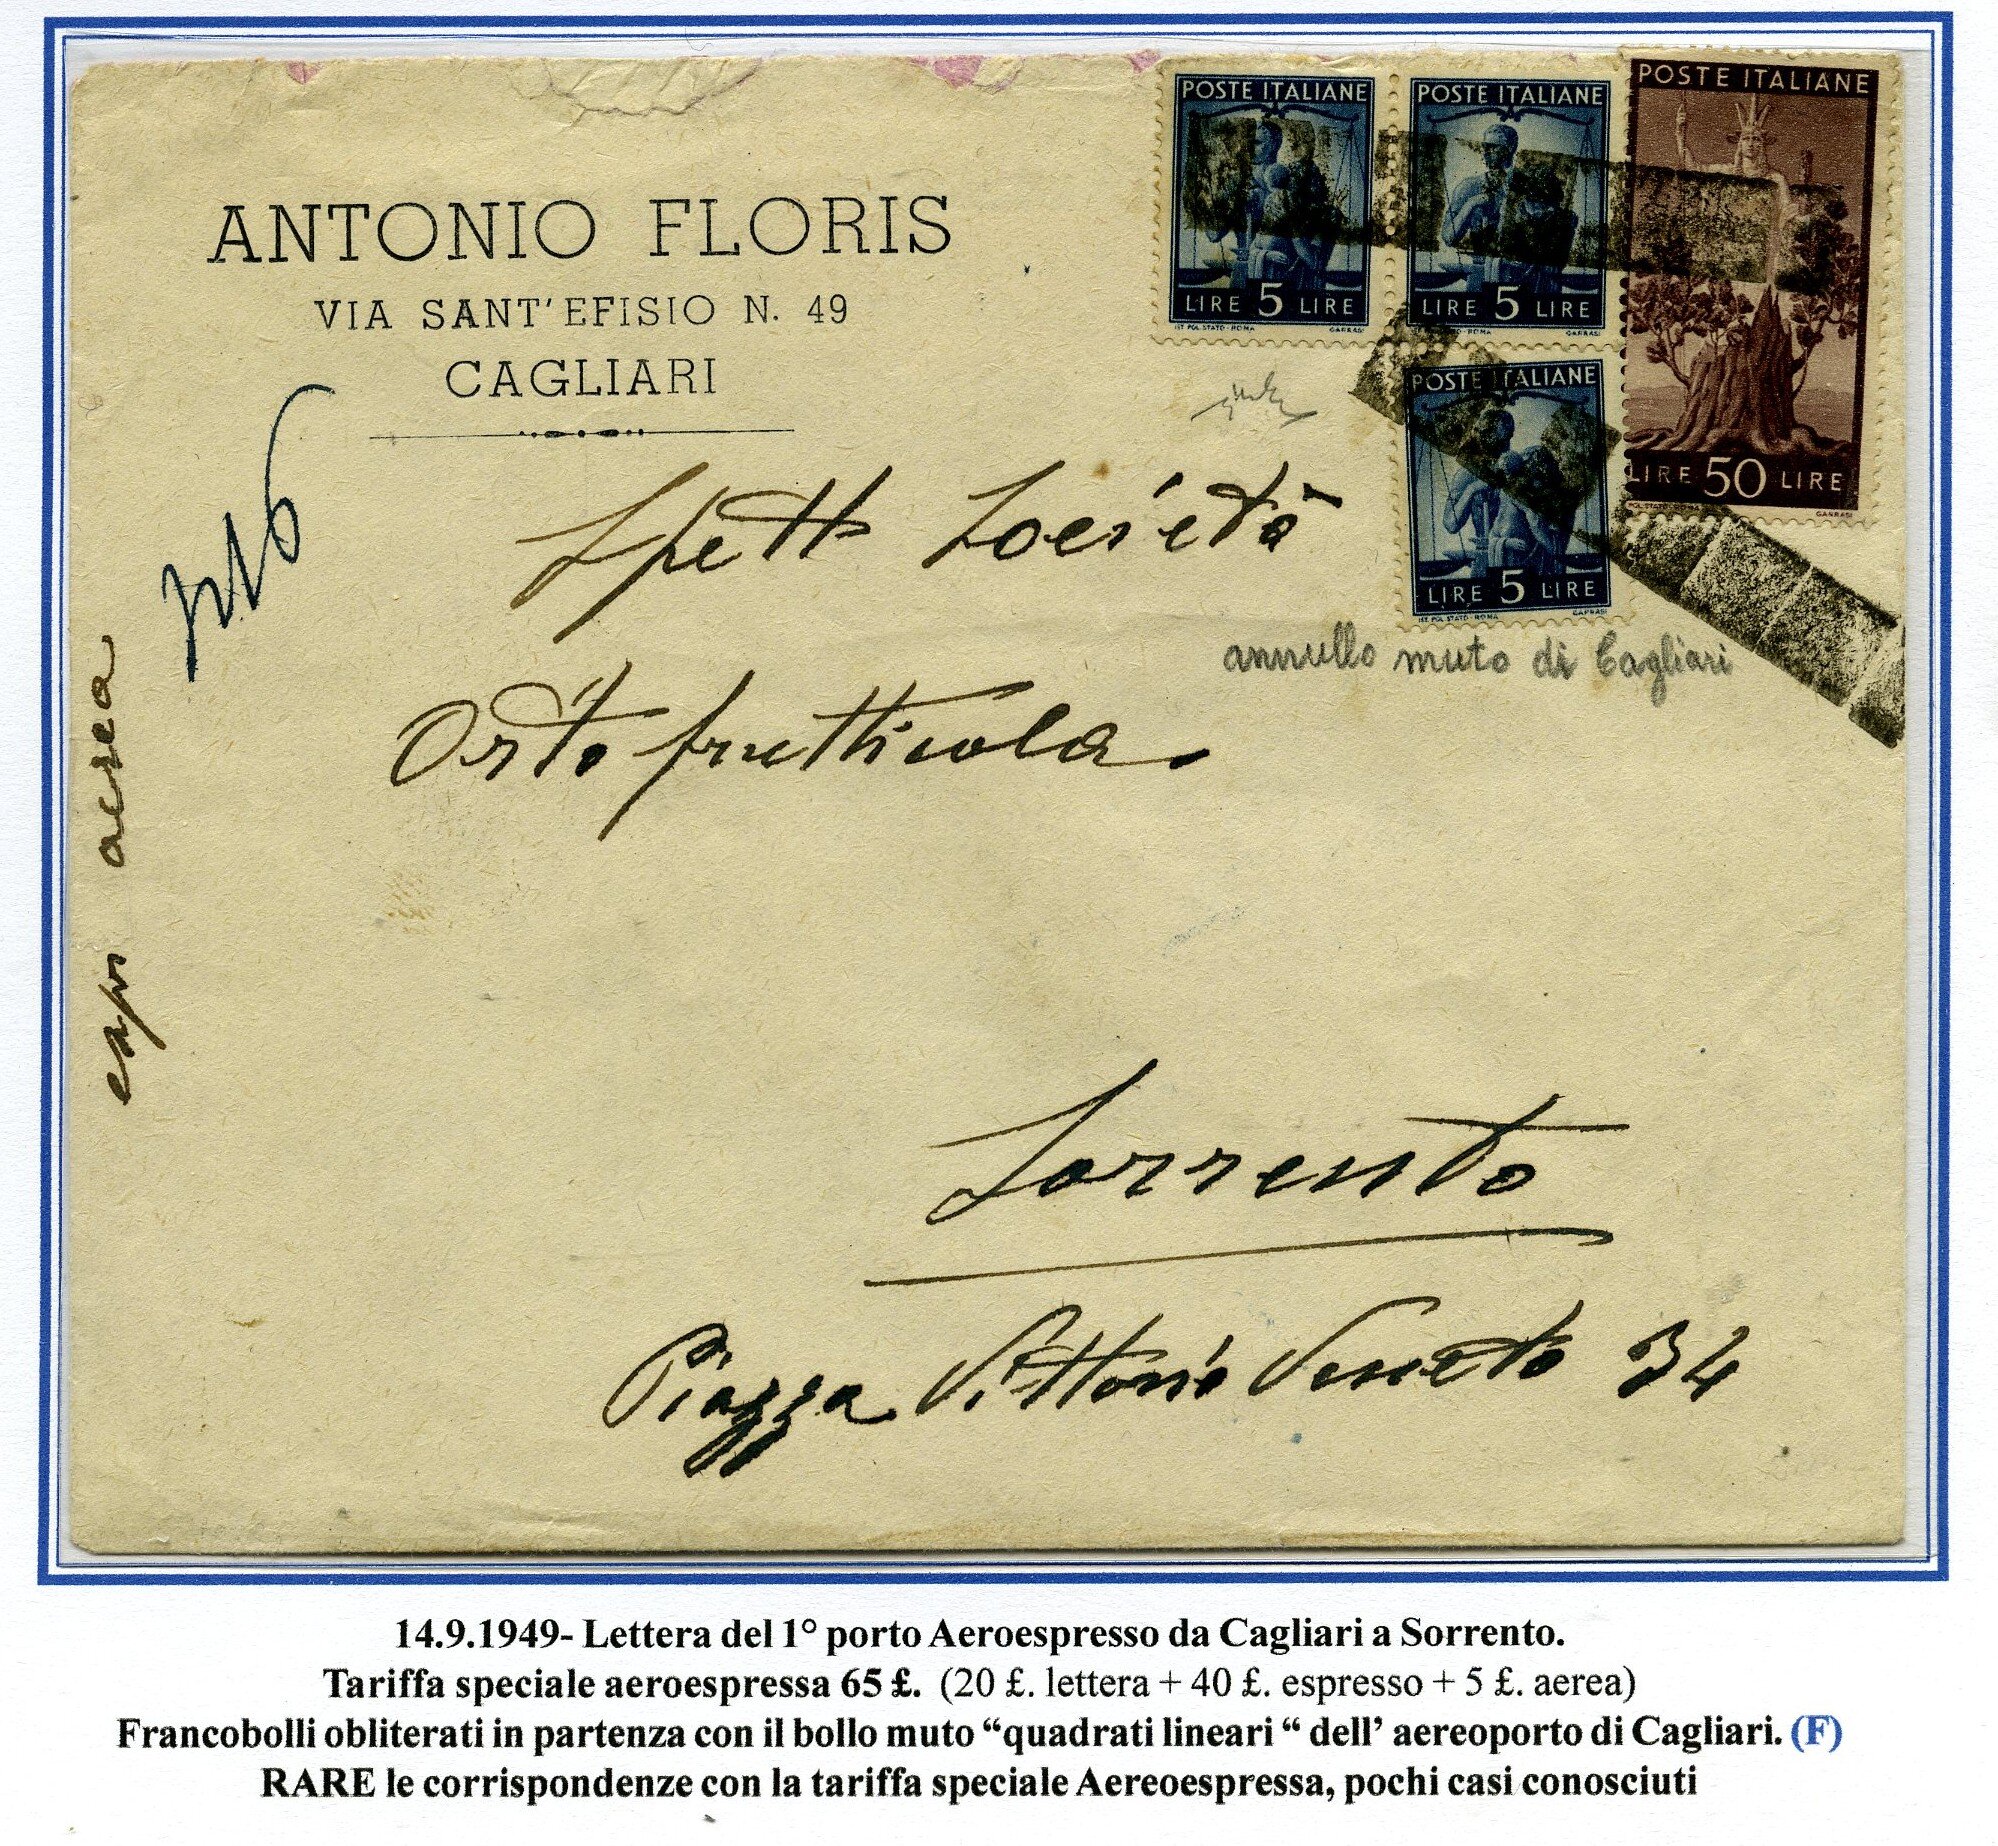 ANTONIO FLORIS
VIA SANT'EFISIO N. 49
CAGLIARI
POSTE ITALIANE
LIRE 5 LIRE
IST. POL. STATO - ROMA
GARRASI
POSTE ITALIANE
LIRE 5 LIRE
IST. POL. STATO - ROMA
GARRASI
POSTE ITALIANE
LIRE 50 LIRE
POL. STATO - ROMA
GARRASI
POSTE ITALIANE
LIRE 5 LIRE
IST. POL. STATO - ROMA
GARRASI
annullo muto di Cagliari
Spett Società
Orto frutticola
espr aerea
Sorrento
Piazza Vittorio Veneto 34
14.9.1949- Lettera del 1° porto Aeroespresso da Cagliari a Sorrento.
Tariffa speciale aeroespressa 65 £. (20 £. lettera + 40 £. espresso + 5 £. aerea)
Francobolli obliterati in partenza con il bollo muto “quadrati lineari “ dell’ aereoporto di Cagliari. (F)
RARE le corrispondenze con la tariffa speciale Aereoespressa, pochi casi conosciuti